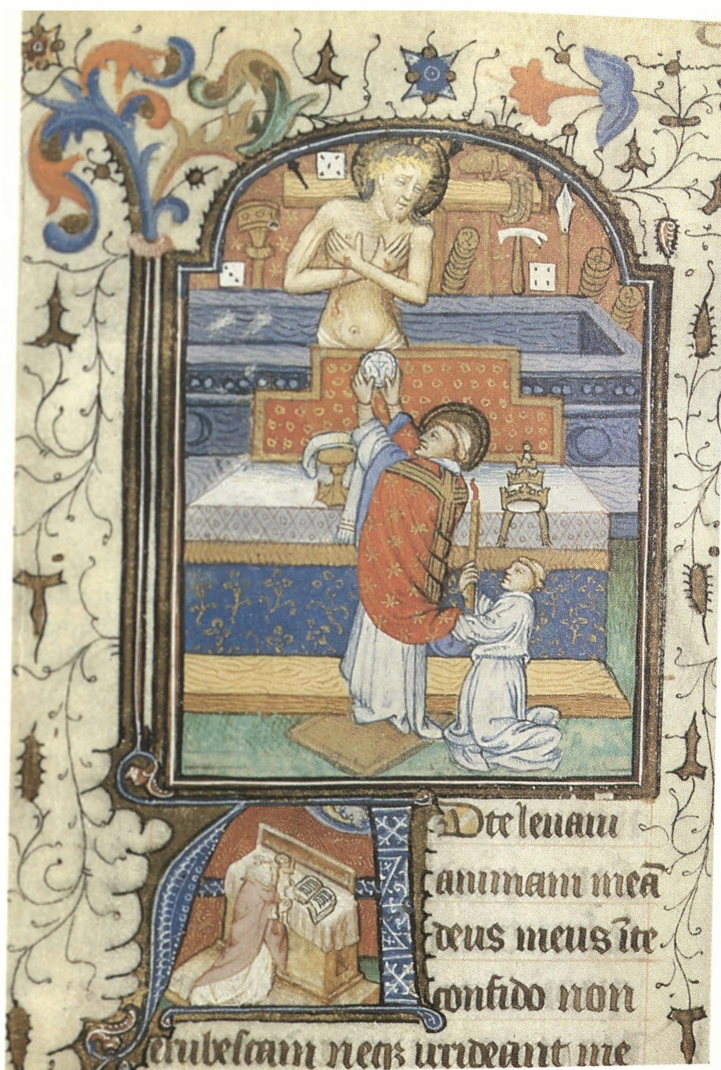 AD te leuaui
animam meā
deus meus ī te
confido non
erubescam neqꝫ irrideant me